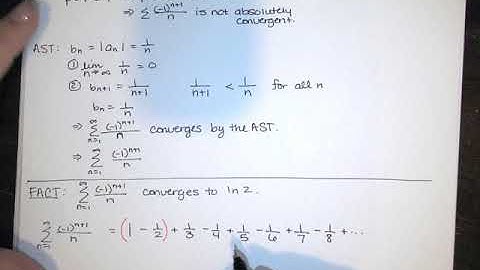 ⇒ Σ (-1)^(n+1)/n is not absolutely
convergent.
AST: bₙ = |aₙ| = 1/n
① lim n→∞ 1/n = 0
② bₙ₊₁ = 1/(n+1) 1/(n+1) < 1/n for all n
bₙ = 1/n
⇒ Σ n=1 ∞ (-1)^(n+1)/n converges by the AST.
⇒ Σ n=1 ∞ (-1)^(n+1)/n
FACT: Σ n=1 ∞ (-1)^(n+1)/n converges to ln 2.
Σ n=1 ∞ (-1)^(n+1)/n = (1 - 1/2) + 1/3 - 1/4 + 1/5 - 1/6 + 1/7 - 1/8 + ⋯